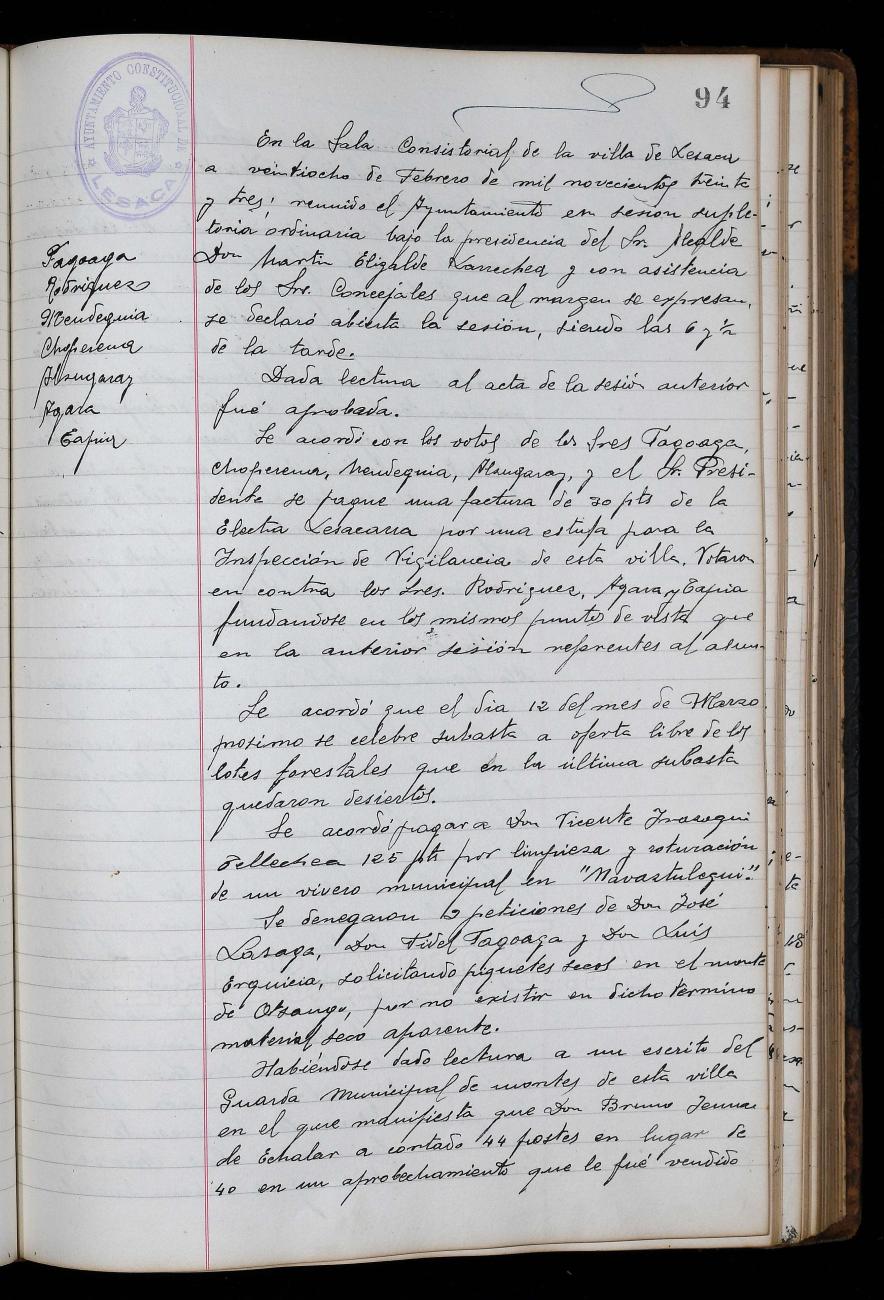 94
AYUNTAMIENTO CONSTITUCIONAL DE
LESACA
Tagoaga
Rodriguez
Mendeguia
Choperena
Alsugaray
Agara
Tapia
En la Sala Consistorial de la villa de Lesaca
a veintiocho de Febrero de mil novecientos treinta
y tres; reunido el Ayuntamiento en sesión suple-
toria ordinaria bajo la presidencia del Sr. Alcalde
Don Martin Elizalde y con asistencia
de los Srs. Concejales que al margen se expresan,
se declaró abierta la sesión, siendo las 6 y ½
de la tarde.
Dada lectura al acta de la sesión anterior
fué aprobada.
Se acordó con los votos de los Sres Tagoaga,
Choperena, Mendeguia, Alsugaray, y el Sr. Presi-
dente se pague una factura de 30 pts de la
Electra Lesacarra por una estufa para la
Inspección de Vigilancia de esta villa. Votaron
en contra los Sres. Rodriguez, Agara y Tapia
fundandose en los mismos puntos de vista que
en la anterior sesión referentes al asun-
to.
Se acordó que el dia 12 del mes de Marzo
prosimo se celebre subasta a oferta libre de los
lotes forestales que en la última subasta
quedaron desiertos.
Se acordó pagar a Don Vicente
Tellechea 125 pts por limpieza y roturación
de un vivero municipal en "Navaztulegui".
Se denegaron 2 peticiones de Don José
Lasaga, Don Fidel Tagoaga y Don Luis
Erquicia, solicitando piquetes secos en el monte
de Otsango, por no existir en dicho termino
material seco aparente.
Habiéndose dado lectura a un escrito del
Guarda Municipal de montes de esta villa
en el que manifiesta que Don Bruno
de Echalar a cortado 44 postes en lugar de
40 en un aprobechamiento que le fué vendido